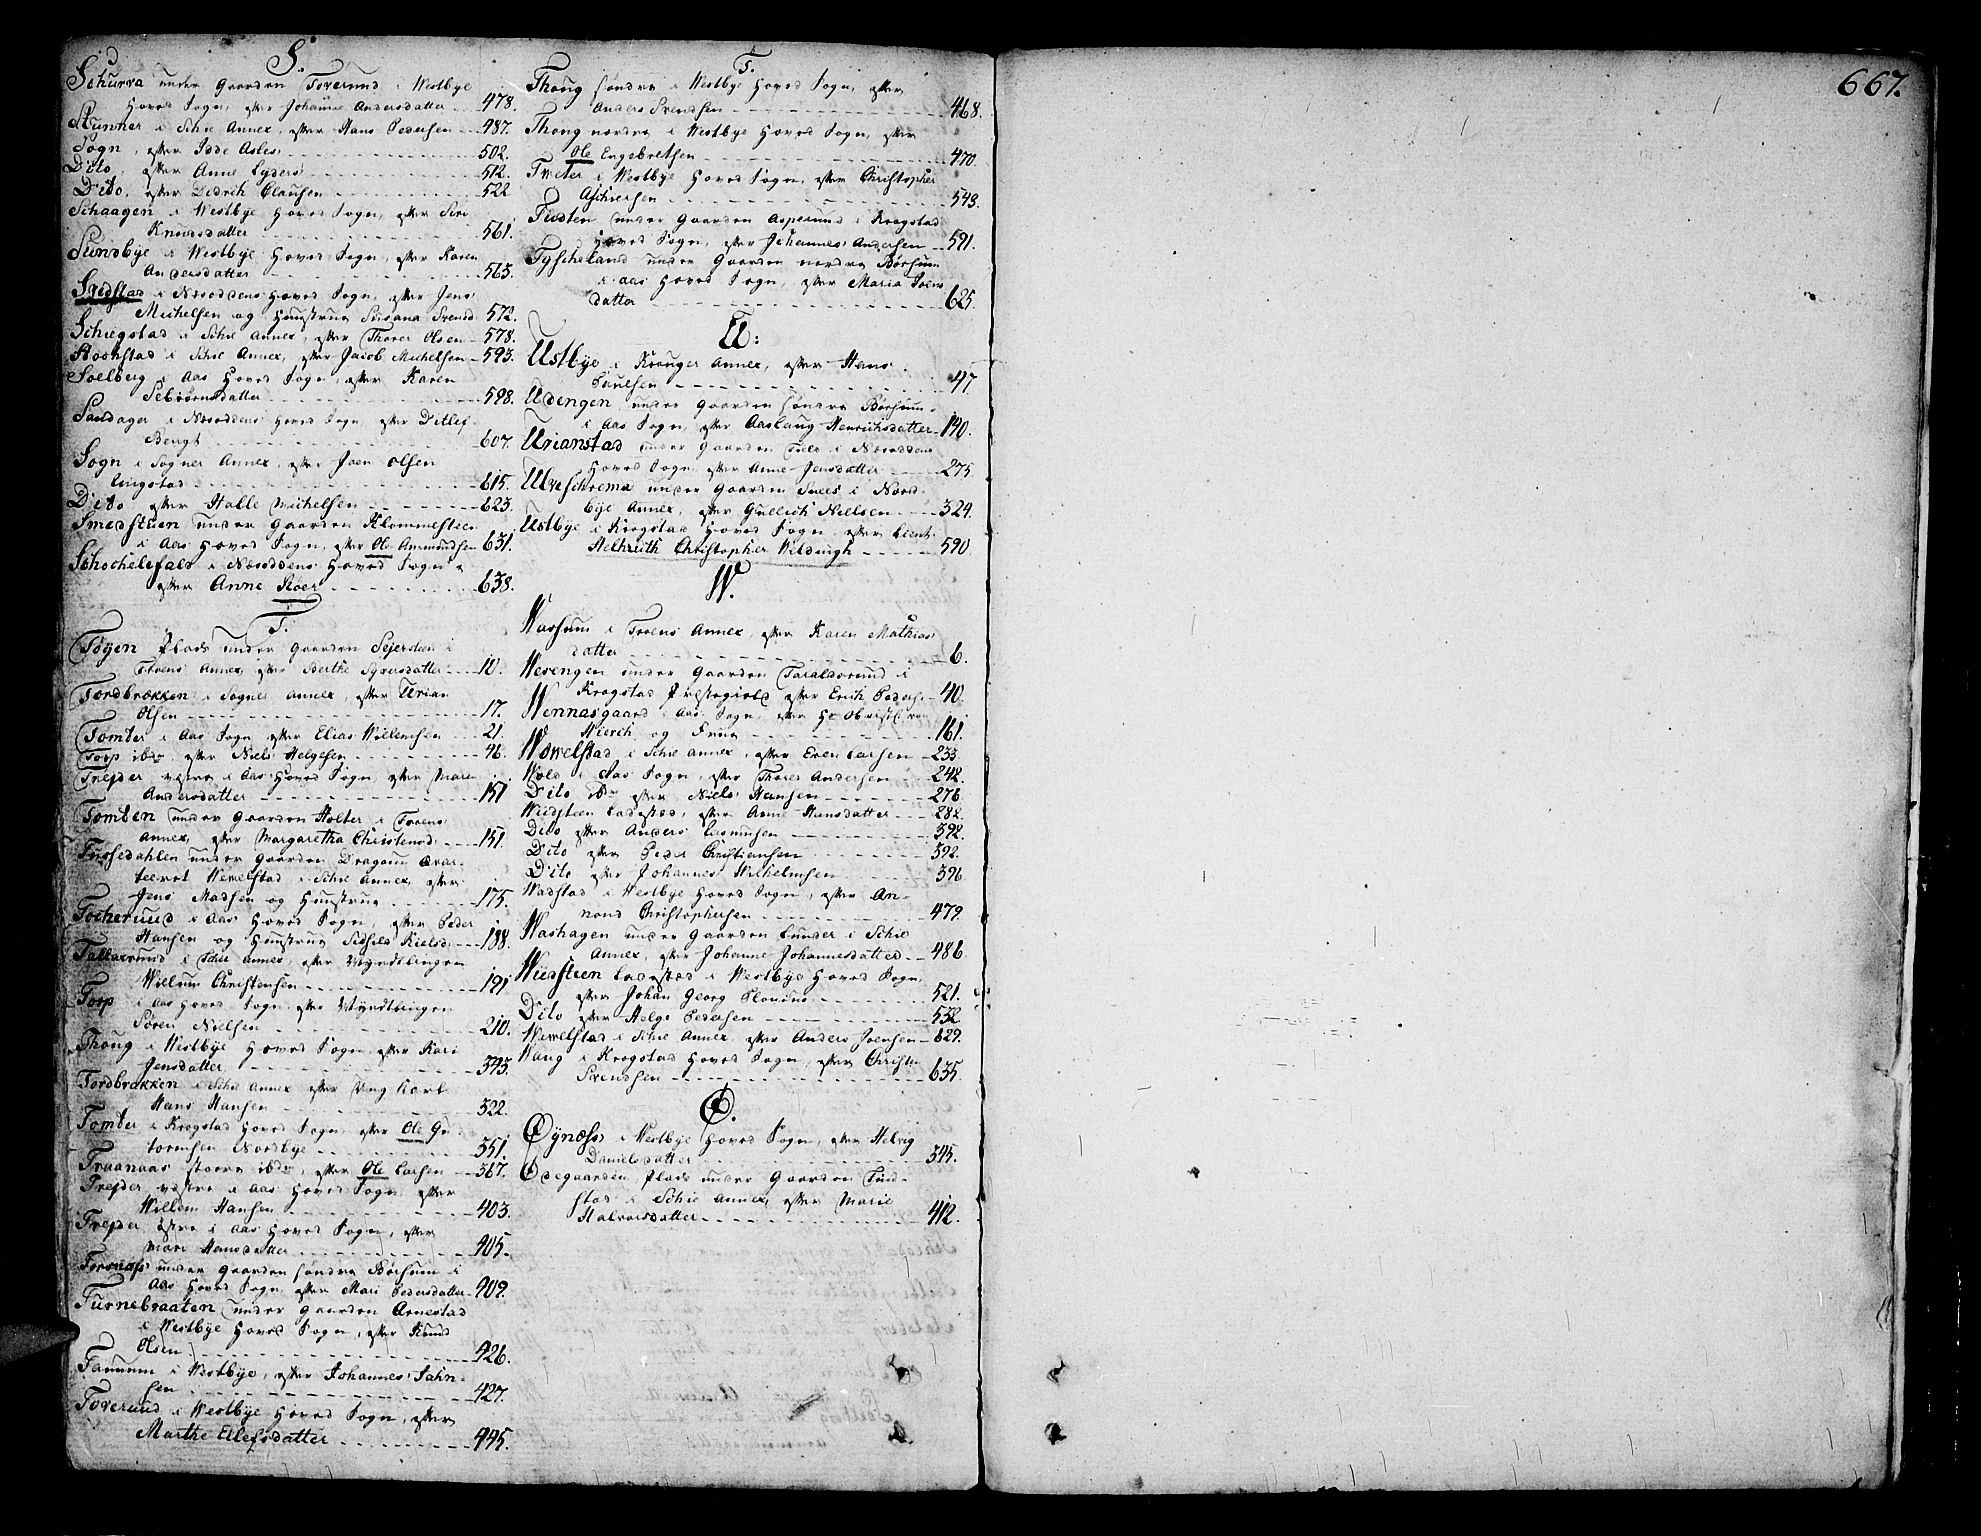 S.
Schurra under Gaarden Toverund i Westbye
Hoved Sogn, efter Johanne Andersdatter 478.
Stunner i Schie Annex, efter Hans Pedersen 487.
Sogn, efter Isde Asles 502.
Dito efter Anne Lyders 512.
Dito, efter Didrich Clausen 522
Schaagen i Westbye Hoved Sogn, efter Siri
Knudsdatter 561.
Sundbye i Westbye Hoved Sogn, efter Karen
Andersdatter 563.
i Næsoddens Hoved Sogn, efter Jens
Michelsen og Huustrue Susana Svensd 572.
Schiegstad i Schie Annex, efter Thorer Olsen 578.
Stochstad i Schie Annex, efter Jacob Michelsen 593.
Soelberg i Aas Hoved Sogn, efter Karen
Sebiørnsdatter 598.
Sandager i Næsoddens Hoved Sogn, efter Ditlef
Bengt 607.
Sogn i Sogner Annex, efter Joen Olsen
Lingstad 615.
Dito efter Halle Michelsen 623.
Smedstuen under Gaarden Klommesteen
i Aas Hoved Sogn, efter Ole Ammundsen 631.
Schochelefald i Næsoddens Hoved Sogn
efter Anne Roer 638.
T.
Tøyen Plads under Gaarden Sejersteen i
Froens Annex, efter Berthe Syversdatter 10.
Tordbrækken i Sogner Annex, efter Urian
Olsen 17.
Tomter i Aas Sogn efter Elias Willemsen 21.
Torp ibdm, efter Niels Helgesen 46.
Trejder vestre i Aas Hoved Sogn, efter Maren
Andersdatter 151
Tomten under Gaarden Holter i Froens
Annex, efter Margaretha Christensd. 151.
Tussedahlen under Gaarden Dragoun Qvar-
teeret Wevelstad i Schie Annex, efter
Jens Madsen og Huustrue 175.
Tocherud i Aas Hoved Sogn, efter Peder
Hansen og Huustrue Sidsels Kielsd. 188.
Tallacrud i Schie Annex, efter Myndtlingen
Willum Christensen 191
Torp i Aas Hoved Sogn, efter Myndtlingen
Søren Nielsen 210.
Thong i Westbye Hoved Sogn, efter Kari
Jensdatter 343.
Tordbrækken i Schie Annex efter Ung Karl
Hans Hansen 322.
Tomter i Krogstad Hoved Sogn efter Ole Gu-
tormsen Nordbye 351.
Fraanaas store ibdm, efter Ole Larsen 367.
Trejder vestre i Aas Hoved Sogn, efter
Willum Hansen 403.
Trejder østre i Aas Hoved Sogn, efter
Mari Hansdatter 405.
Forsnæss under Gaarden søndre Børsum i
Aas Hoved Sogn, efter Mari Pedersdatter 409.
Turnebraaten under Gaarden Arnestad
i Westbye Hoved Sogn, efter Knud
Olsen 426.
Tanum i Westbye, efter Johannes Jahn-
sen 427.
Toverud i Westbye Hoved Sogn, efter
Marthe Ellefsdatter 445.
T.
Thong søndre i Westbye Hoved Sogn, efter
Anders Svendsen 468.
Thong nordre i Westbye Hoved Sogn, efter
Ole Engebretsen 470.
Tveter i Westbye Hoved Sogn, efter Christopher
Aschiersen 543.
Tusten under Gaarden Asperud i Krogstad
Hoved Sogn, efter Johannes Andersen 591.
Tyscheland under Gaarden nordre Børsum
i Aas Hoved Sogn, efter Maria Joens
datter 625.
U:
Ustbye i Kraager Annex, efter Hans
Poulsen 47
Udengen under Gaarden søndre Børsum
i Aas Sogn, efter Aaslaug Henrichsdatter 140.
Urianstad under Gaarden Tulr i Næsoddens
Hoved Sogn, efter Anne Jensdatter 275.
Ulveschrema under Gaarden Snees i Nord-
bye Annex, efter Gullich Nielsen 324.
Ustbye i Krogstad Hoved Sogn, efter Lieut.
Helmuth Christopher Wildingh 590.
W.
Warsum i Froens Annex, efter Karen Mathias
datter 6.
Wesengen under Gaarden Taraldsrud i
Krogstad Præstegield efter Erich Peders. 40.
Wennasgaard i Aas Sogn, efter Hr Obristl. von
Hierch og Frue 161.
Wewelstad i Schie Annex, efter Even Larsen 233
Wold i Aas Sogn, efter Thorer Andersen 242.
Dito ibdm efter Niels Hansen 276
Widsteen Ladested, efter Anne Hansdatter 282.
Dito efter Anders Rasmusen 392.
Dito efter Peder Christiansen 392.
Dito efter Johannes Wilhelmsen 396
Wadstad i Westbye Hoved Sogn, efter An-
nond Christophersen 479.
Washagen under Gaarden Lunder i Schie
Annex, efter Johanne Johannesdatter 486.
Widsteen Ladested i Westbye Hoved Sogn
efter Johan Georg Clovius 521.
Dito efter Helge Pedersen 552
Wewelstad i Schie Annex efter Anders Joensen 629.
Wang i Krogstad Hoved Sogn, efter Christi
Svendsen 635.
Ø.
Øynæss i Westbye Hoved Sogn, efter Helvig
Danielsdatter 345.
Ødegaarden Plads under Gaarden Find-
stad i Schie Annex, efter Marie
Halvorsdatter 412.
667.